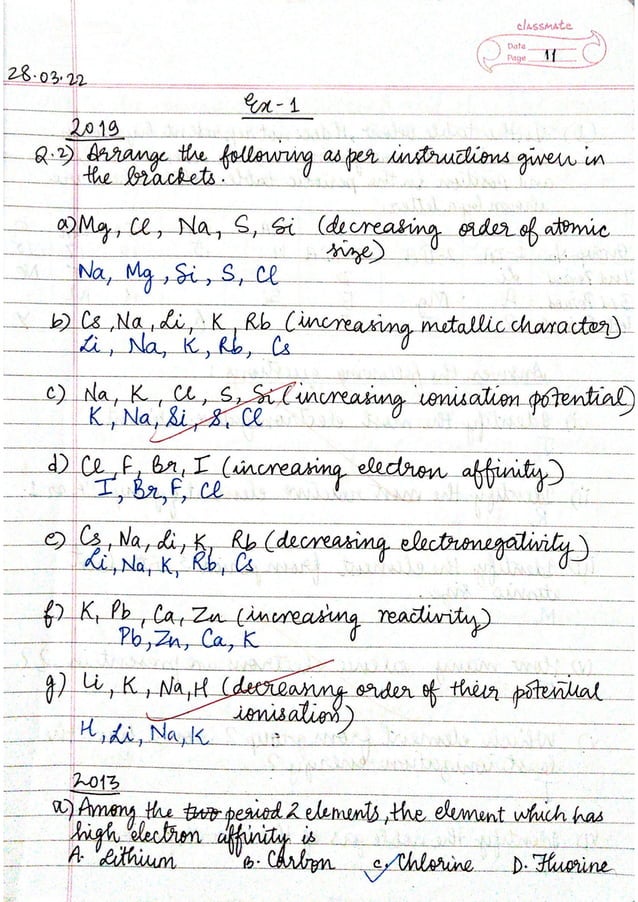 classmate
Date
Page 11
28.03.22
Ex-1
2019
Q.2) Arrange the following as per instructions given in
the brackets.
a) Mg, Cl, Na, S, Si (decreasing order of atomic
size)
Na, Mg, Si, S, Cl
b) Cs, Na, Li, K, Rb (increasing metallic character)
Li, Na, K, Rb, Cs
c) Na, K, Cl, S, Si (increasing ionisation potential)
K, Na, Si, S, Cl
d) Cl, F, Br, I (increasing electron affinity)
I, Br, F, Cl
e) Cs, Na, Li, K, Rb (decreasing electronegativity)
Li, Na, K, Rb, Cs
f) K, Pb, Ca, Zn (increasing reactivity)
Pb, Zn, Ca, K
g) Li, K, Na, H (decreasing order of their potential
ionisation)
H, Li, Na, K
2013
a) Among the two period 2 elements, the element which has
high electron affinity is
A. Lithium B. Carbon C. Chlorine D. Fluorine